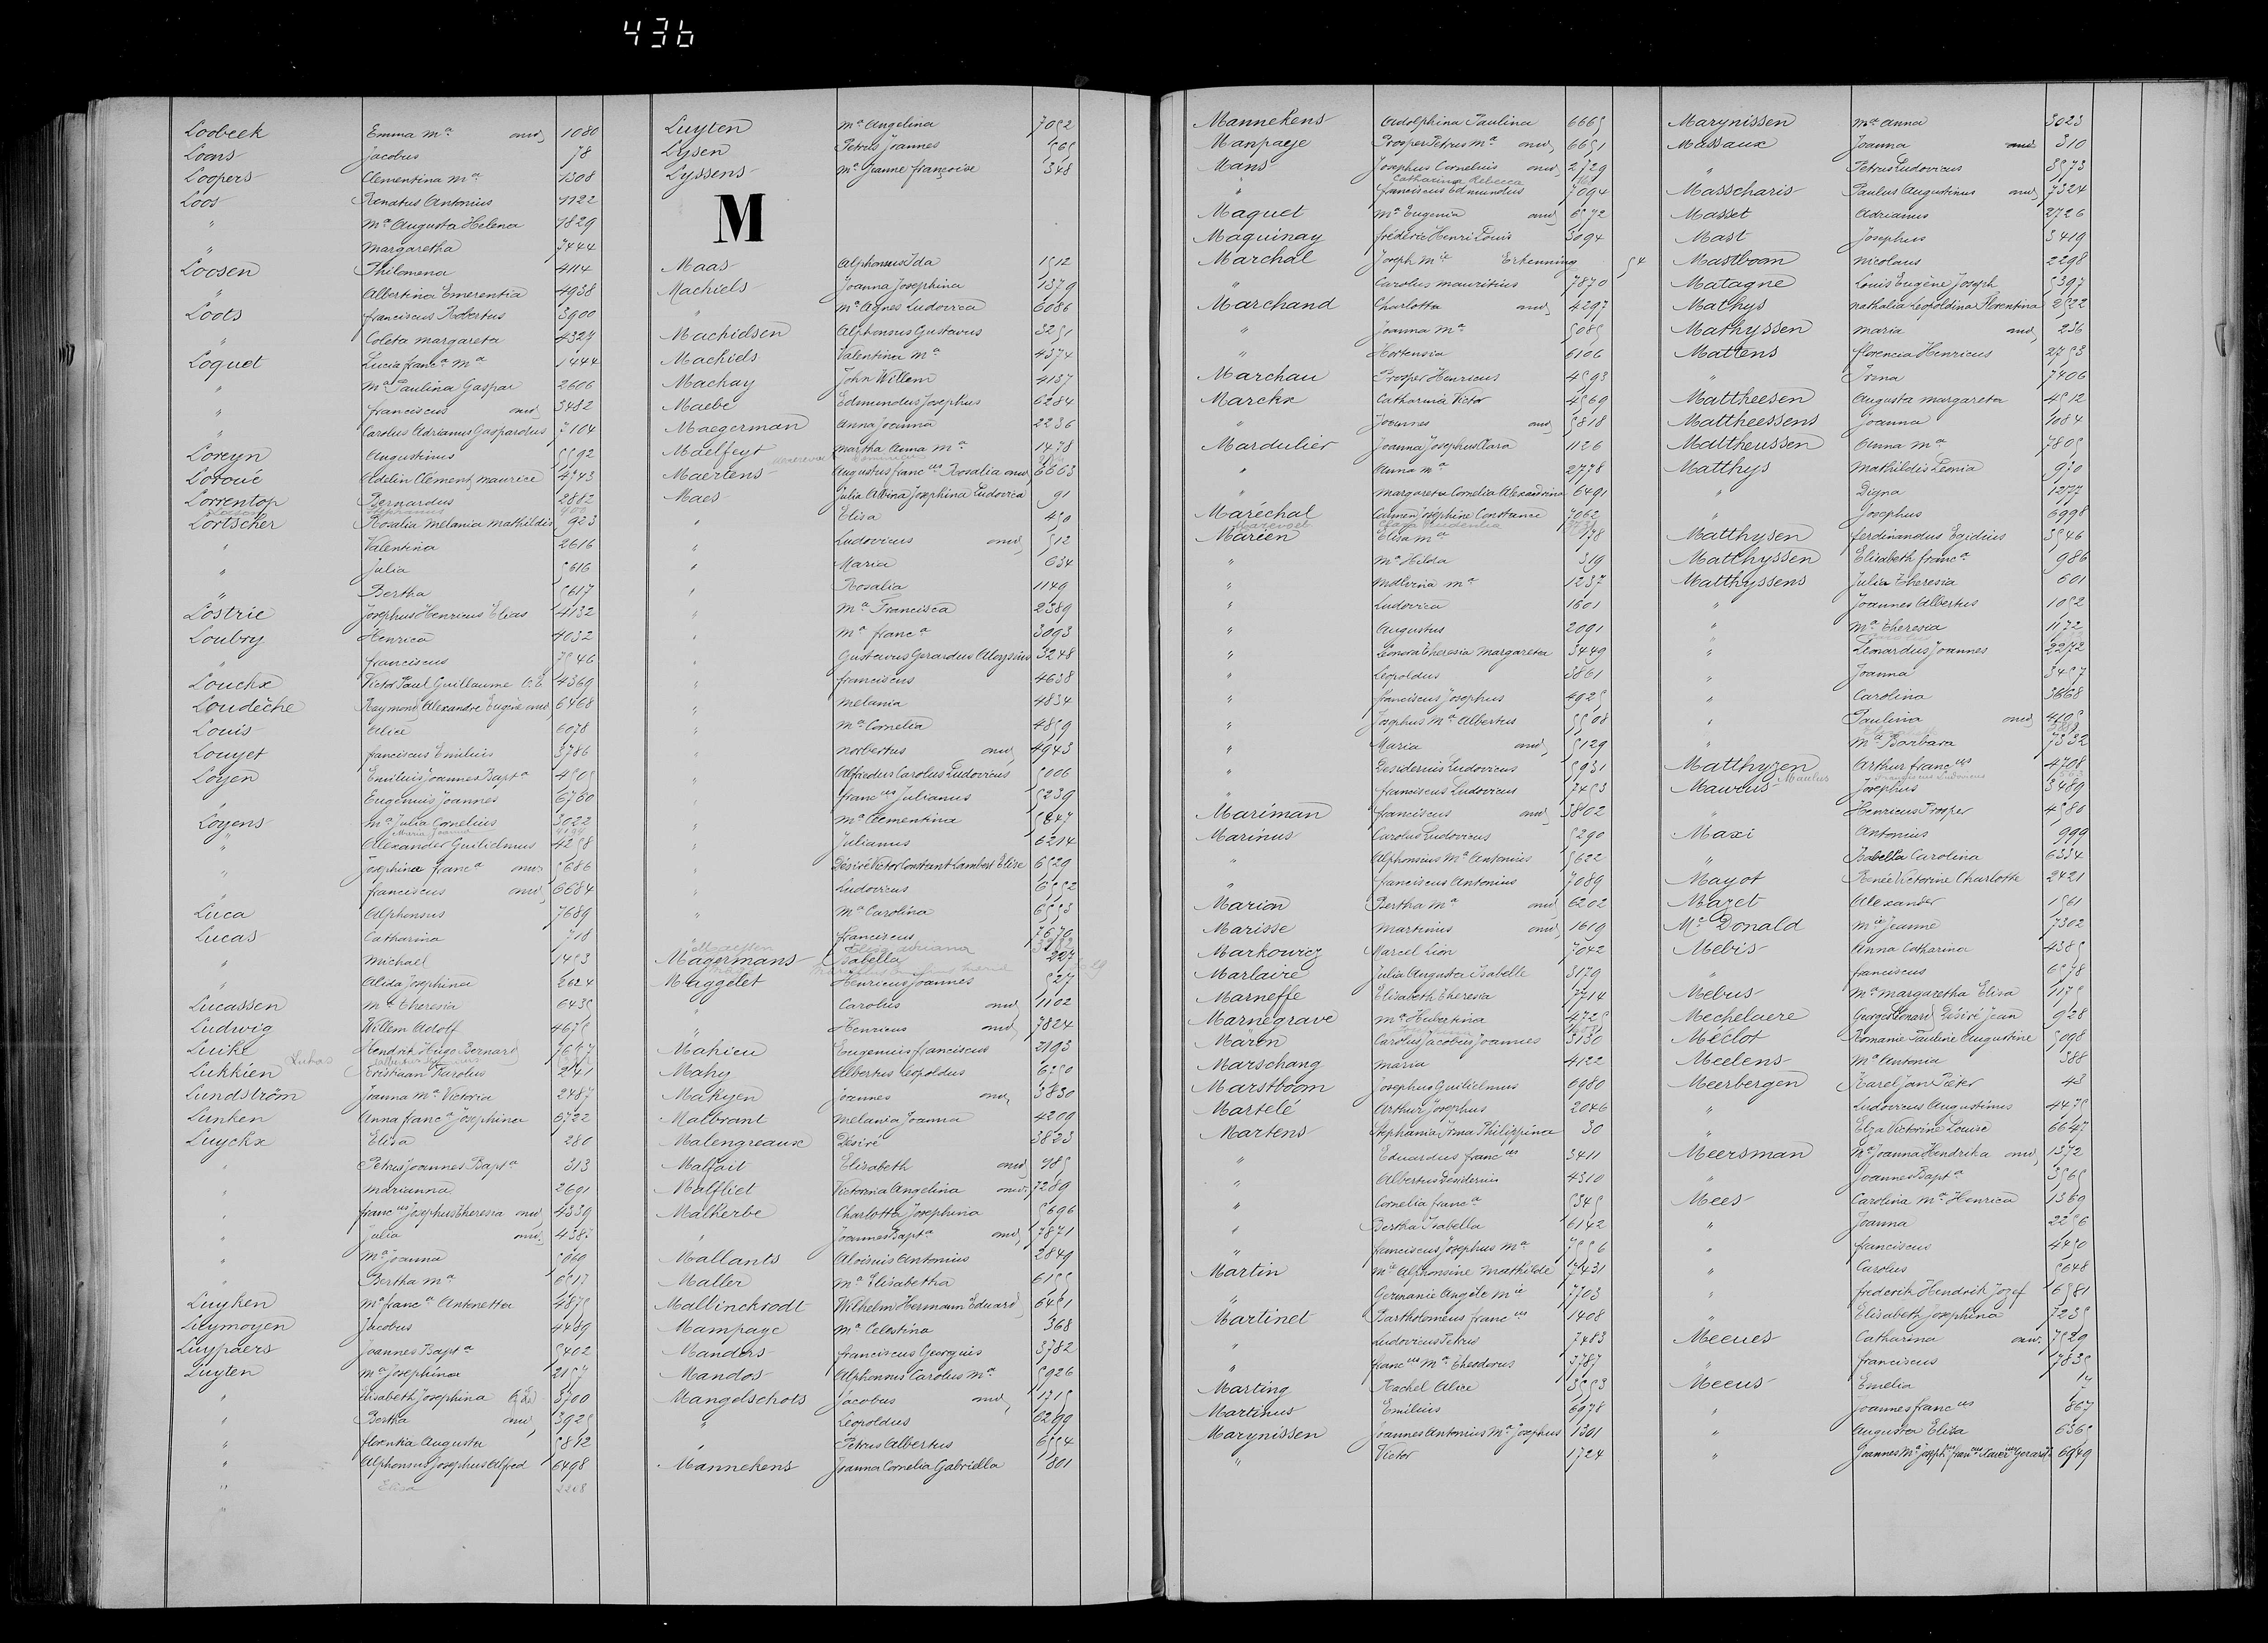 436
Loobeek Emma Mª onw 1080
Loons Jacobus 78
Loopers Clementina Mª 1308
Loos Renatus Antonius 1122
" Mª Augusta Helena 1829
" Margaretha 7444
Loosen Philomena 4114
" Albertina Emerentia 4938
Loots franciscus Robertus 3900
" Coleta Margareta 4327
Loquet Lucia francª Mª 1444
" Mª Paulina Gaspar 2606
" franciscus onw 3482
" Carolus Adrianus Gaspardus 7104
Loreyn Augustinus 5592
Loroué Adelin Clément Maurice 4743
Lorrentop Bernardus 2882
Lortscher Rosalia Melania Mathildis 923
" Valentina 2616
" Julia 5616
" Bertha 5617
Lostrie Josephus Henricus Elias 4132
Loubry Henrica 4032
" franciscus 7546
Louckx Victor Paul Guillaume 4369
Loudèche Raymond Alexandre Eugène onw 6468
Louis Alice 6078
Louyet franciscus Emilius 3786
Loyen Emilius Joannes Baptª 4505
" Eugenius Joannes 6760
Loyens Mª Julia Cornelius 3022
Maria Joanna
" Alexander Guilielmus 4258
" Josephina francª onw 5686
" franciscus onw 6684
Luca Alphonsus 7689
Lucas Catharina 718
" Michael 1453
" Alida Josephina 2624
Lucassen Mª Theresia 6435
Ludwig Willem Adolf 4675
Luike Hendrik Hugo Bernard
Lukas
Lukkien Kristiaan Karolus 2741
Lundström Joanna Mª Victoria 2487
Lunken Anna francª Josephina 6722
Luyckx Elisa 280
" Petrus Joannes Baptª 313
" Marianna 2691
" francus Josephus Theresia onw 4339
" Julia onw 4385
" Mª Joanna 5060
" Bertha Mª 6517
Luyken Mª francª Antonetta 4875
Luymoyen Jacobus 4459
Luypaers Joannes Baptª 5402
Luyten Mª Josephina 2157
" Elisabeth Josephina 3700
" Bertha onw 3925
" florentia Augusta 5812
" Alphonsus Josephus Alfred 6498
" Elisa 2208
"
Luyten Mª Angelina 7052
Lysen Petrus Joannes 565
Lyssens Mª Jeanne françoise 348
M
Maas Alphonsus Ida 1512
Machiels Joanna Josephina 1379
" Mª Agnes Ludovica 6086
Machielsen Alphonsus Gustavus 3251
Machiels Valentina Mª 4374
Mackay John Willem 4137
Maebe Edmundus Josephus 6284
Maegerman Anna Joanna 2236
Maelfeyt Martha Anna Mª 1478
Maertens Augustus francus Rosalia onw 6663
Maes Julia Albina Josephina Ludovica 91
" Elisa 450
" Ludovicus onw 512
" Maria 634
" Rosalia 1149
" Mª Francisca 2389
" Mª francª 3093
" Gustavus Gerardus Aloysius 3248
" franciscus 4638
" Melania 4834
" Mª Cornelia 4859
" Norbertus onw 4943
" Alfredus Carolus Ludovicus 5006
" francus Julianus 5239
" Mª Clementina 5847
" Julianus 6214
" Désiré Victor Constant Lambert Elise 6529
" Ludovicus 6552
" Mª Carolina 6553
" franciscus 7670
Magermans Isabella 227
Maggelet Henricus Joannes 527
" Carolus onw 1102
" Henricus onw 7824
Mahieu Eugenius franciscus 2193
Mahy Albertus Leopoldus 6250
Mahyen Joannes onw 3830
Malbrant Melania Joanna 4209
Malengreaux Désiré 3823
Malfait Elisabeth onw 985
Malfliet Victorina Angelina onw 7289
Malherbe Charlotta Josephina 5696
" Joannes Baptª onw 7871
Mallants Aloisius Antonius 2849
Maller Mª Elisabetha 6155
Mallinckrodt Wilhelm Hermann Eduard 6451
Mampaye Mª Celestina 368
Manders franciscus Georgius 3782
Mandos Alphonsus Carolus Mª 5926
Mangelschots Jacobus onw 1715
" Leopoldus 6299
" Petrus Albertus 6554
Mannekens Joanna Cornelia Gabriella 801
Mannekens Adolphina Paulina 6665
Manpaye Prosper Petrus Mª onw 6651
Mans Josephus Cornelius onw 2729
Catharina Rebecca
" franciscus Edmundus 7094
Maquet Mª Eugenia onw 6572
Maquinay frédéric Henri Louis 3094
Marchal Joseph Mie Erkenning 54
" Carolus Mauritius 7870
Marchand Charlotta onw 4297
" Joanna Mª 5085
" Hortensia 6106
Marchau Prosper Henricus 4593
Marckx Catharina Victor 4569
" Joannes onw 5818
Mardulier Joanna Josephus Clara 1126
" Anna Mª 2778
" Margareta Cornelia Alexandrina 6491
Maréchal Carmen Joséphine Constance 7062
Mareen Elisa Mª 138
" Mª Hilda 319
" Malvina Mª 1237
" Ludovica 1601
" Augustus 2091
" Leonora Theresia Margareta 3449
" Leopoldus 3861
" franciscus Josephus 4925
" Josephus Mª Albertus 5508
" Maria onw 5129
" Desiderius Ludovicus 5931
" franciscus Ludovicus 7453
Mariman franciscus onw 3802
Marinus Carolus Ludovicus 5290
" Alphonsius Mª Antonius 5622
" franciscus Antonius 7089
Marion Bertha Mª onw 6202
Marisse Martinus onw 1619
Markowicz Marcel Lion 7042
Marlaire Julia Augusta Isabelle 3179
Marneffe Elisabeth Theresia 7714
Marnegrave Mª Hubertina 4725
Maron Carolus Jacobus Joannes 3130
Marschang Maria 4122
Marstboom Josephus Guilielmus 6080
Martelé Arthur Josephus 2046
Martens Stephania Irma Philippina 30
" Eduardus francus 3411
" Albertus Desiderius 4310
" Cornelia francª 5345
" Bertha Isabella 6142
" franciscus Josephus Mª 7556
Martin Mie Alphonsine Mathilde 7431
" Germanie Angèle Mie 7703
Martinet Bartholomeus francus 1408
" Ludovicus Petrus 7483
" francus Mª Theodorus 3787
Marting Rachel Alice 3553
Martinus Emilius 6978
Marynissen Joannes Antonius Mª Josephus 1301
" Victor 1724
Marynissen Mª Anna 3023
Massaux Joanna onw 310
" Petrus Ludovicus 3573
Masscharis Paulus Augustinus onw 7324
Masset Adrianus 2726
Mast Josephus 3419
Mastboom Nicolaus 2298
Matagne Louis Eugène Joseph 5397
Mathys Nathalia Leopoldina Florentina 2522
Mathyssen Maria onw 236
Mattens florencia Henricus 2753
" Irma 7406
Mattheesen Augusta Margareta 4512
Mattheessens Joanna 1084
Mattheussen Anna Mª 7805
Matthys Mathildis Leonia 970
" Digna 1277
" Josephus 6998
Matthysen ferdinandus Egidius 3546
Matthyssen Elisabeth francª 986
Matthyssens Julia Theresia 601
" Joannes Albertus 1052
" Mª Theresia 1172
" Leonardus Joannes 2272
" Joanna 3457
" Carolina 3668
" Paulina onw 4105
" Mª Barbara 7332
Matthyzen Arthur francus 4708
Maulus Franciscus Ludovicus
Maurus Josephus 3489
" Henricus Prosper 4580
Maxi Antonius 999
" Isabella Carolina 6334
Mayot Renée Victorine Charlotte 2421
Mazet Alexander 1561
Mc Donald Mie Jeanne 7302
Mebis Anna Catharina 4385
" franciscus 6578
Mebus Mª Margaretha Elisa 1175
Mechelaere Georges Léonard Désiré Jean 928
Méclot Romanie Pauline Augustine 5098
Meelens Mª Antonia 388
Meerbergen Karel Jan Pieter 43
" Ludovicus Augustinus 4475
" Elza Victorine Louise 6647
Meersman Mª Joanna Hendrika onw 1372
" Joannes Baptª 3565
Mees Carolina Mª Henrica 1360
" Joanna 2256
" franciscus 4450
" Carolus 5648
" frederik Hendrik Jozef 6581
" Elisabeth Josephina 7235
Meeues Catharina onw 7529
" franciscus 7835
Meeus Emelia 14
" Joannes francus 867
" Augusta Elisa 6365
" Joannes Mª Josephus francus Xaverius Gerardus 6949